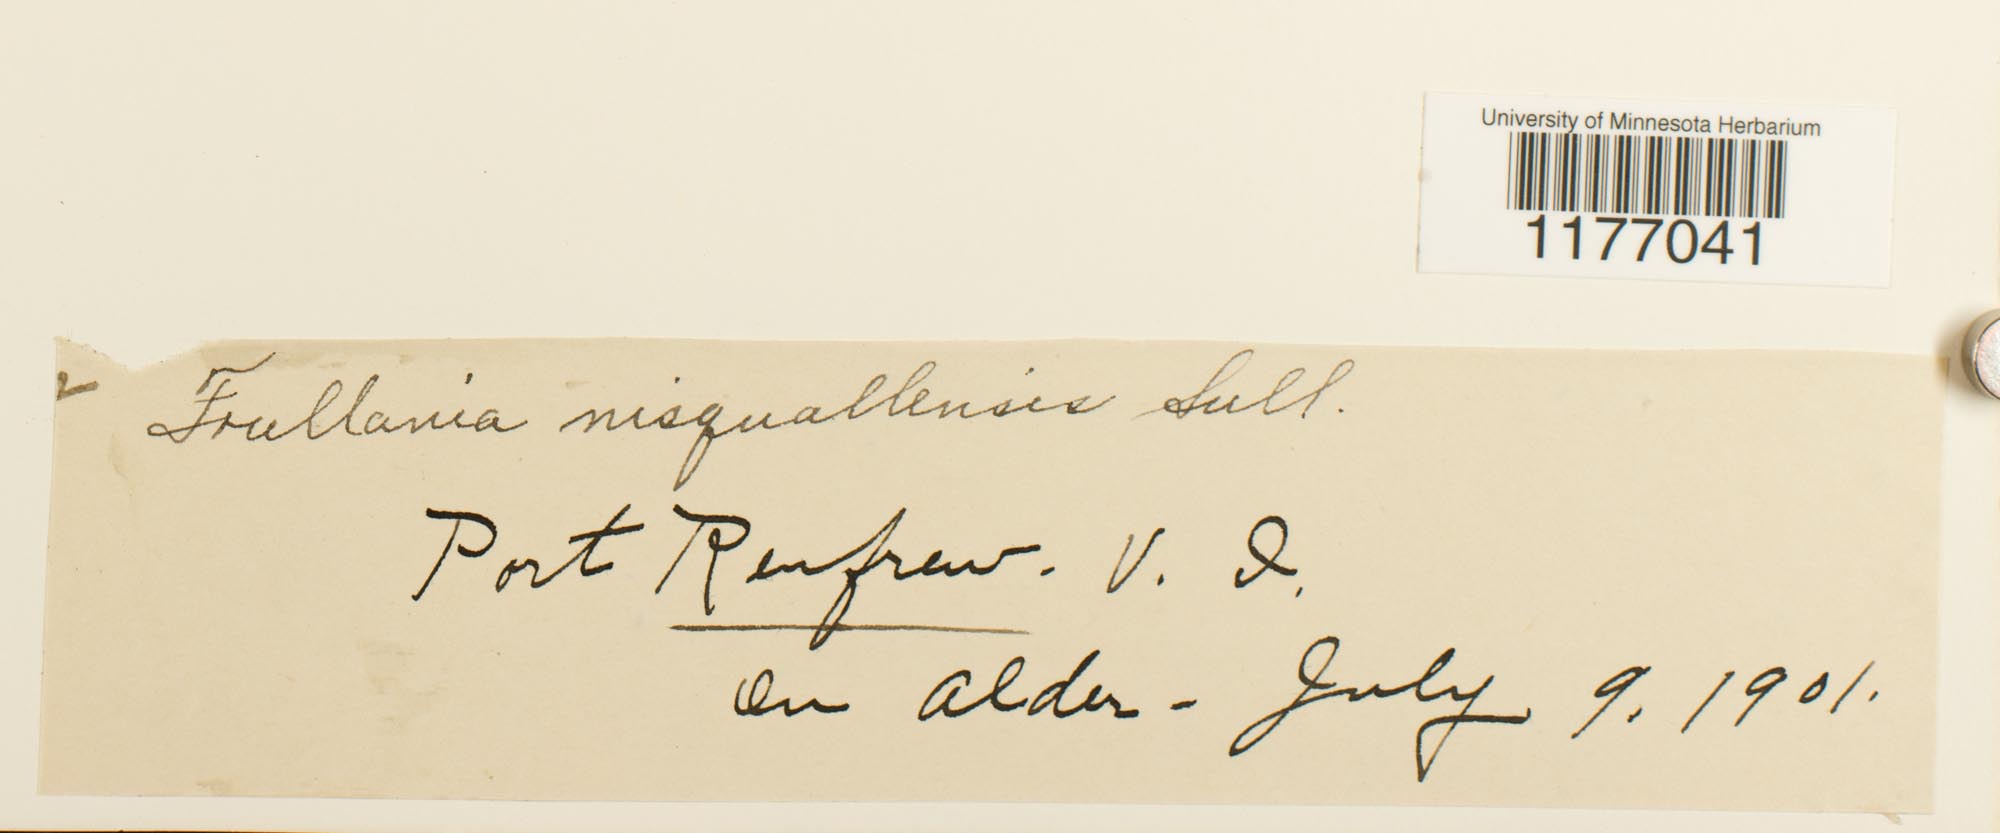 University of Minnesota Herbarium
1177041
Frullania nisquallensis Sull.
Port Renfrew. V. I.
on alder - July 9. 1901.